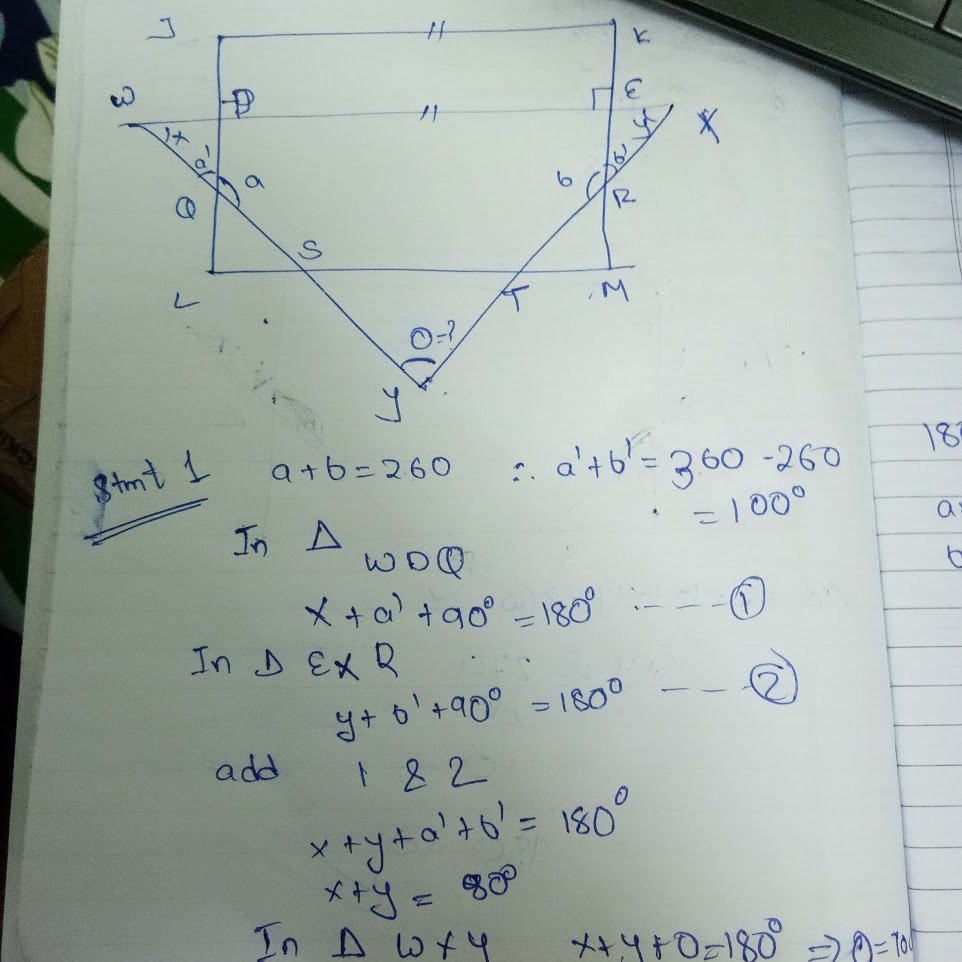 J K
W D E X
x a' a b b' y
Q R
S
L T M
θ=?
Y
Stmt 1 a+b=260 ∴ a'+b'=360-260
=100°
In Δ WDQ
x+a'+90°=180° ---- ①
In Δ EXR
y+b'+90°=180° --- ②
add 1 & 2
x+y+a'+b'=180°
x+y= 80°
In Δ WXY x+y+θ=180° ⇒